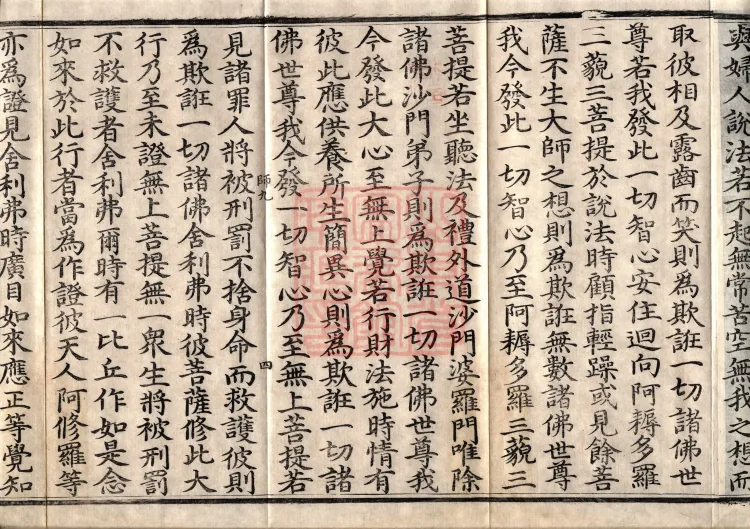 與婦人說法若不起無常苦空無我之想而
取彼相及露齒而笑則為欺誑一切諸佛世
尊若我發此一切智心安住迴向阿耨多羅
三藐三菩提於說法時顧指輕躁或見餘菩
薩不生大師之想則為欺誑無數諸佛世尊
我今發此一切智心乃至阿耨多羅三藐三
菩提若坐聽法及禮外道沙門婆羅門唯除
諸佛沙門弟子則為欺誑一切諸佛世尊我
今發此大心至無上覺若行財法施時情有
彼此應供養所生簡異心則為欺誑一切諸
佛世尊我今發一切智心乃至無上菩提若
師九
四
見諸罪人將被刑罰不捨身命而救護彼則
為欺誑一切諸佛舍利弗時彼菩薩修此大
行乃至未證無上菩提無一眾生將被刑罰
不救護者舍利弗爾時有一比丘作如是念
如來於此行者當為作證彼天人阿修羅等
亦為證見舍利弗時廣目如來應正等覺知